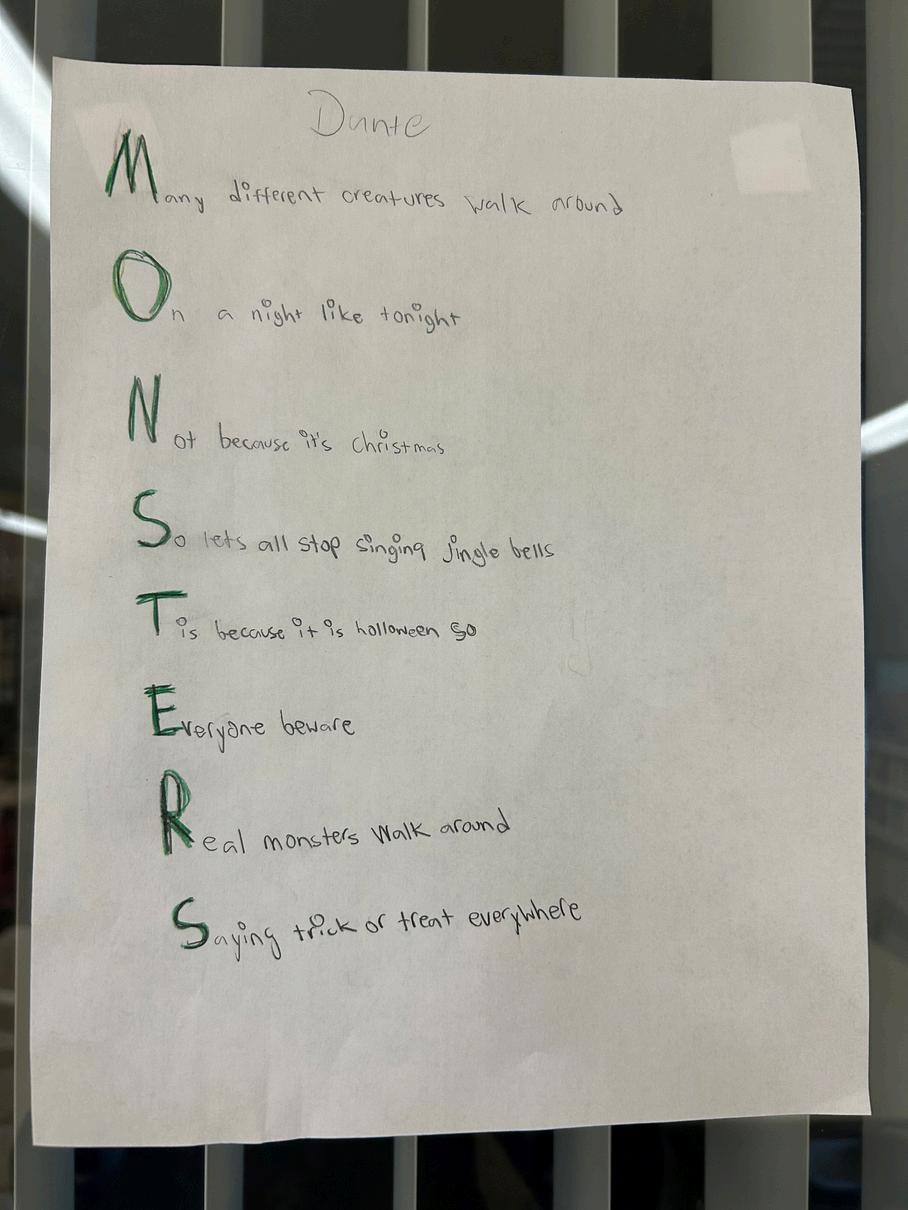 Dante
Many different creatures walk around
On a night like tonight
Not because it's christmas
So lets all stop singing jingle bells
Tis because it is holloween so
Everyone beware
Real monsters walk around
Saying trick or treat everywhere